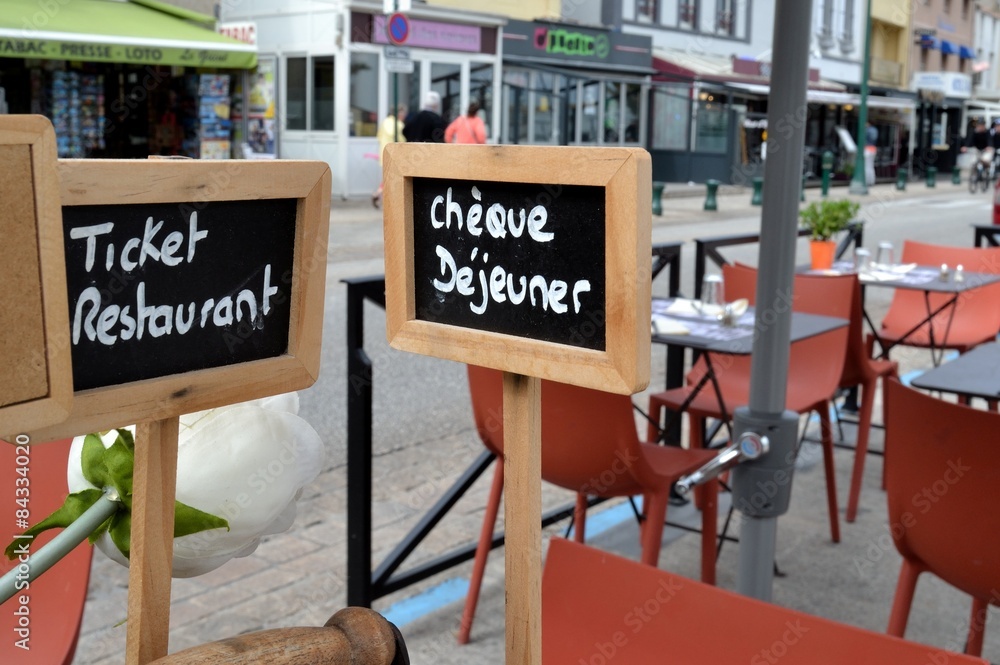 TABAC - PRESSE - LOTO
Ticket
Restaurant
Chèque
Déjeuner
Adobe Stock | #84334020